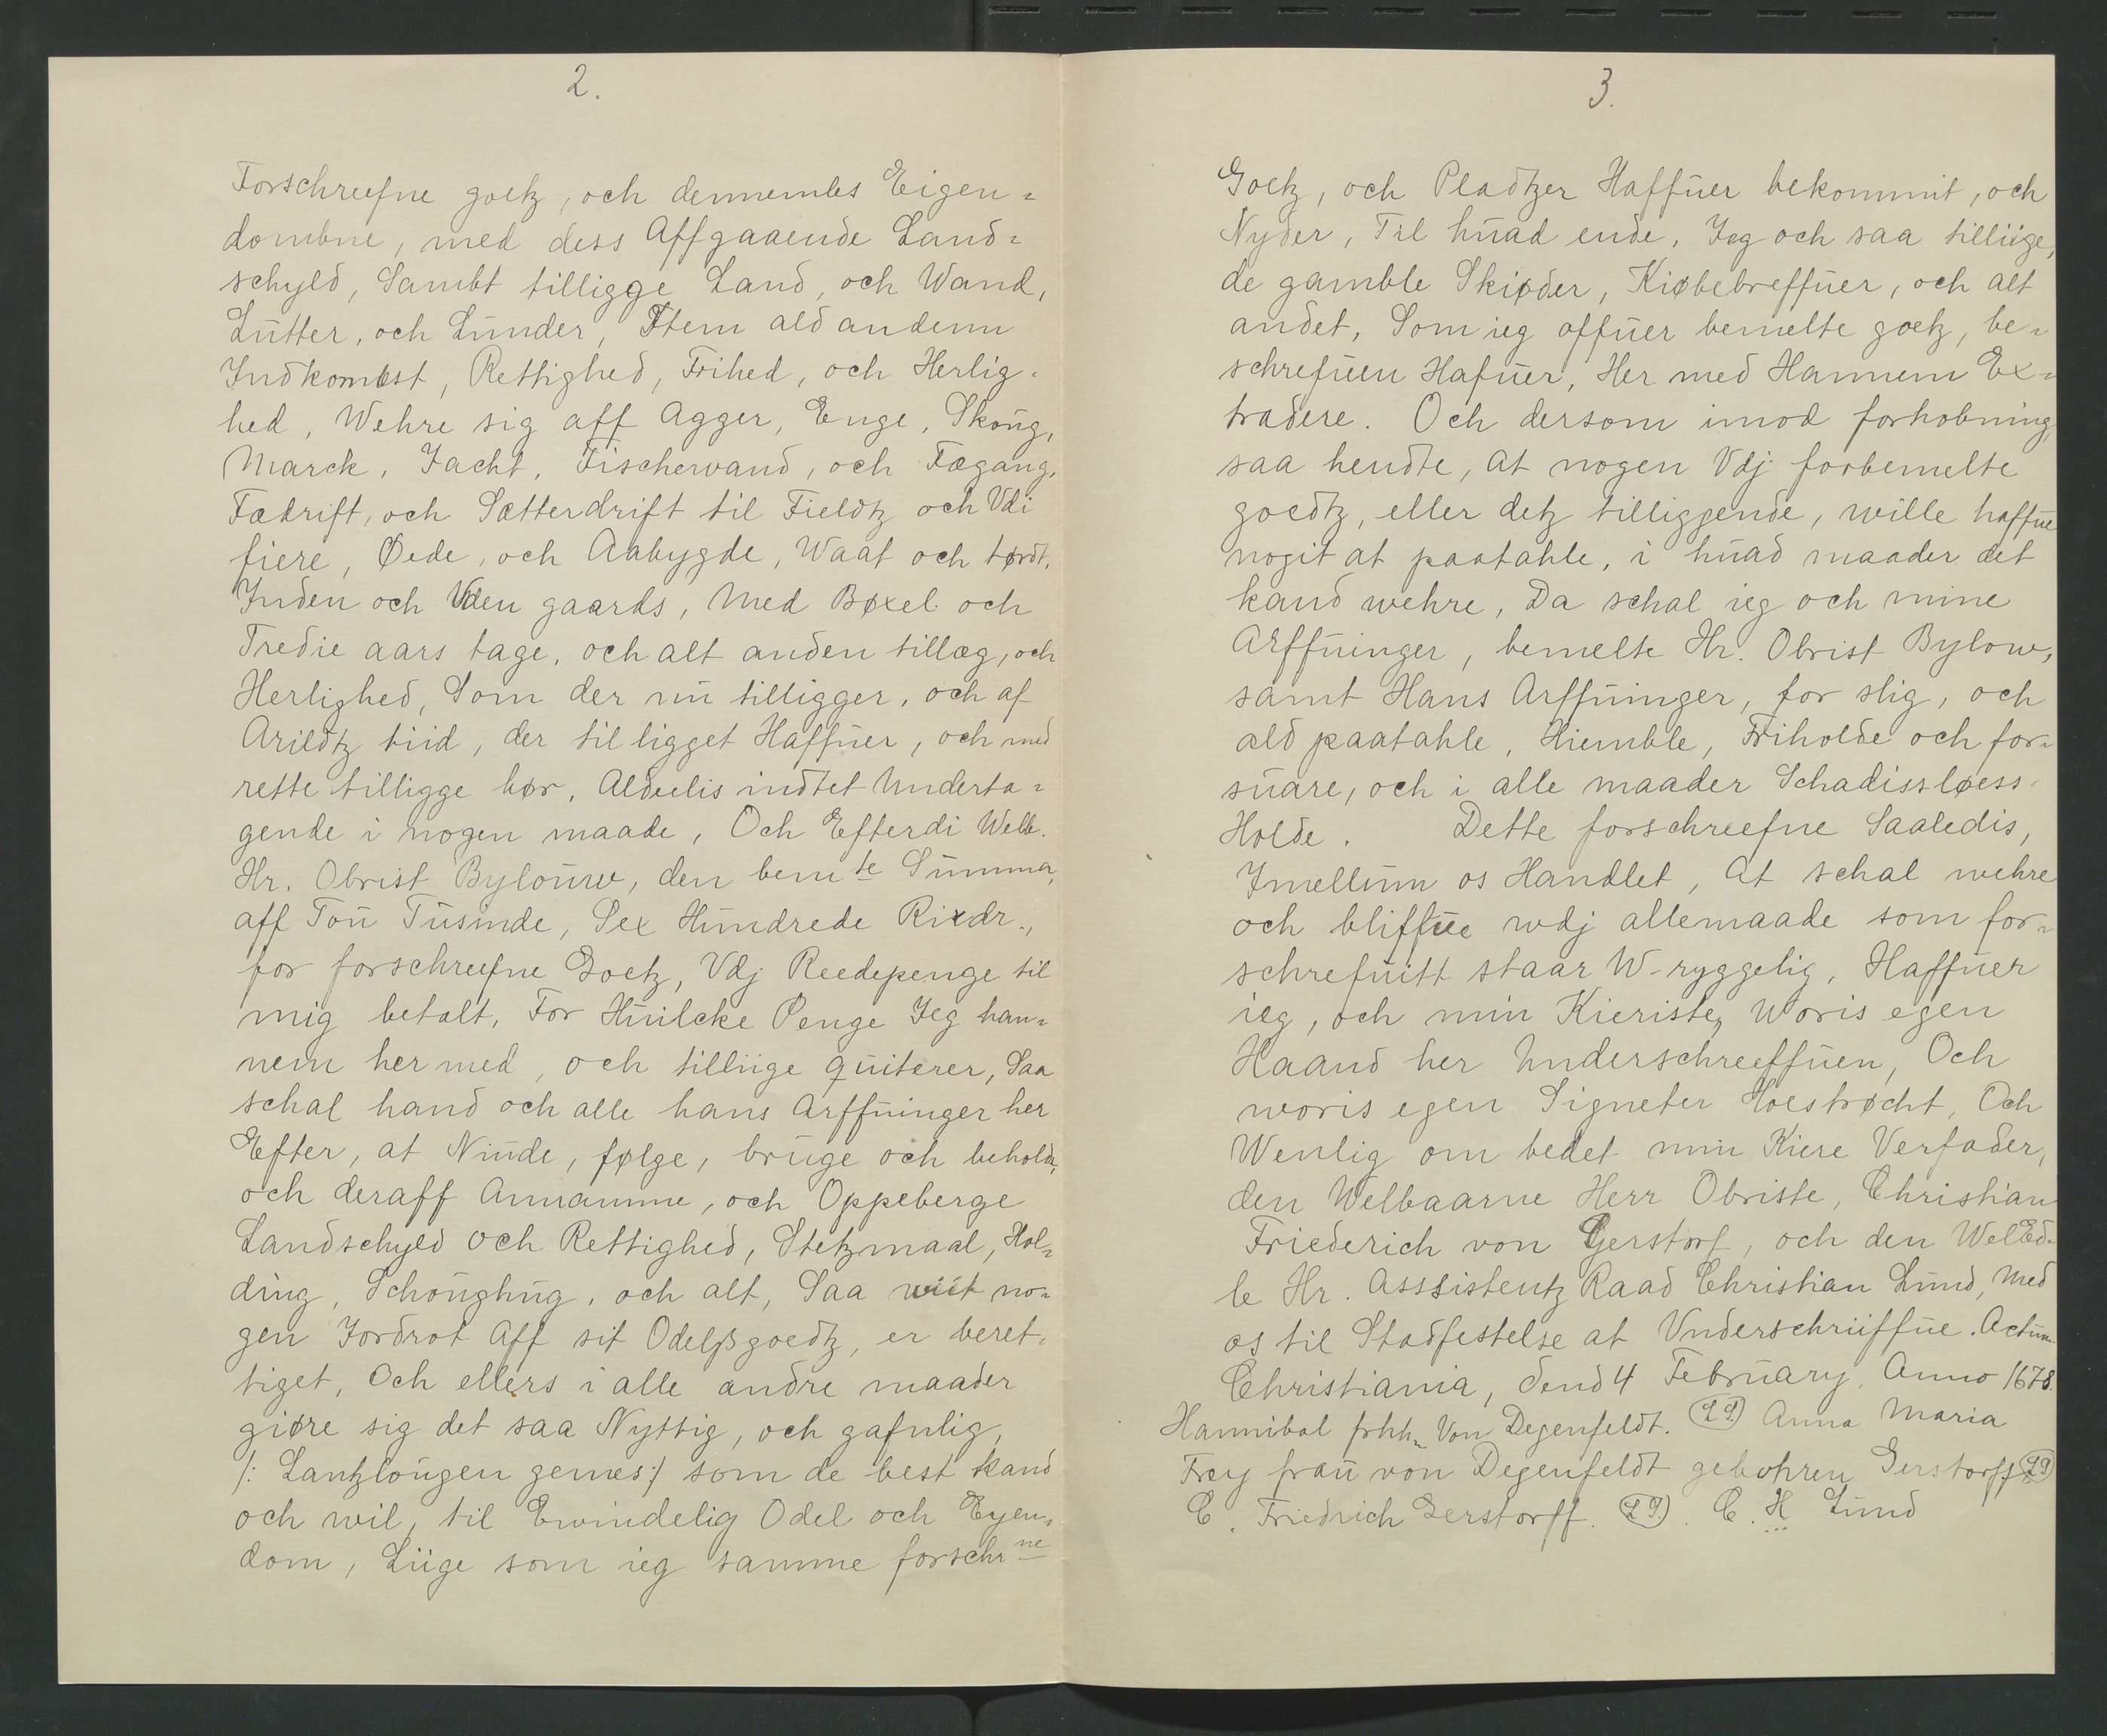 2.
Forschreefne goetz, och dennembs Eigen=
dombne, med dess Affgaaende Land=
schyld, Sambt tilligge Land, och Wand,
Lutter, och Lunder, Item ald andenn
Indkombst, Rettighed, Frihed, och Herlig-
hed, Wehre sig aff Agger, Enge, Skoug,
Marck, Jacht, Fischervand, och Fægang,
Fædrift, och Sætterdrift til Fieldtz och Vdi
fiere, Øede, och Aabygde, Waat och tørdt,
Inden och Uden gaards, Med Bøxel och
Tredie aars tage, och alt anden tillæg, och
Herlighed, Som der nu tilligger, och af
Arildtz tiid, der til ligget Haffuer, och med
rette tilligge bør, Aldeelis indtet Underta=
gende i nogen maade, Och Efterdi Welb.
Hr. Obrist Bylouw, den bemte Summa,
aff Tou Tusinde, Sex Hundrede Rixdr.,
for forschreefne Goetz, Vdj Reedepenge til
mig betalt, For Huilcke Penge Jeg han=
nem her med, och tilliige quiterer, Saa
schal hand och alle hans Arffuinger her
Efter, at Niude, følge, bruge och beholde,
och deraff Annamme, och Oppeberge
Landschyld och Rettighed, Stetzmaal, Hol=
ding, Schoughug, och alt, Saa wiit no=
gen Jordrot Aff sit Odelßgoedtz, er beret-
tiget, Och ellers i alle andre maader
giøre sig det saa Nyttig, och gafnlig,
/: Lantzlougen gemes:/ som de best kand
och wil, til Ewindelig Odel och Eyen=
dom, Liige som ieg samme forschrne
3.
Goetz, och Pladtzer Haffuer bekommit, och
Nyder, Til huad ende, Jeg och saa tilliige,
de gamble Skiøder, Kiøbebreffuer, och alt
andet, Som ieg offuer bemelte goetz, be=
schrefuen Hafuer, Her med Hannem Ex=
tradere. Och dersom imod forhobning,
saa hendte, at nogen Vdj forbemelte
goedtz, eller detz tilliggende, wille haffue
nogit at paatahle, i huad maader det
kand wehre, Da schal ieg och mine
Arffuinger, bemelte Hr. Obrist Bylow,
samt Hans Arffuinger, for slig, och
ald paatahle, Hiemble, Friholde och for=
suare, och i alle maader Schadissløess-
Holde. Dette forschreefne Saaledis,
Imellum os Handlet, At schal wehre
och bliffue wdj allemaade som for=
schrefuitt staar W-ryggelig, Haffuer
ieg, och min Kieriste, Woris egen
Haand her Underschreeffuen, Och
woris egen Signeter Hoestrøcht, Och
Wenlig om bedet min Kiere Verfader,
den Welbaarne Herr Obriste, Christian
Friederich von Gerstorf, och den WelEd-
le Hr. Asssistentz Raad Christian Lund, Med
os til Stadfestelse at Vnderschriiffue. Actum
Christiania, dend 4 February, Anno 1678.
Hannibal frhh. Von Degenfeldt. Anna Maria
Frey frau von Degenfeldt gebohren Gerstorff
C. Friedrich Gerstorff. C. H Lund